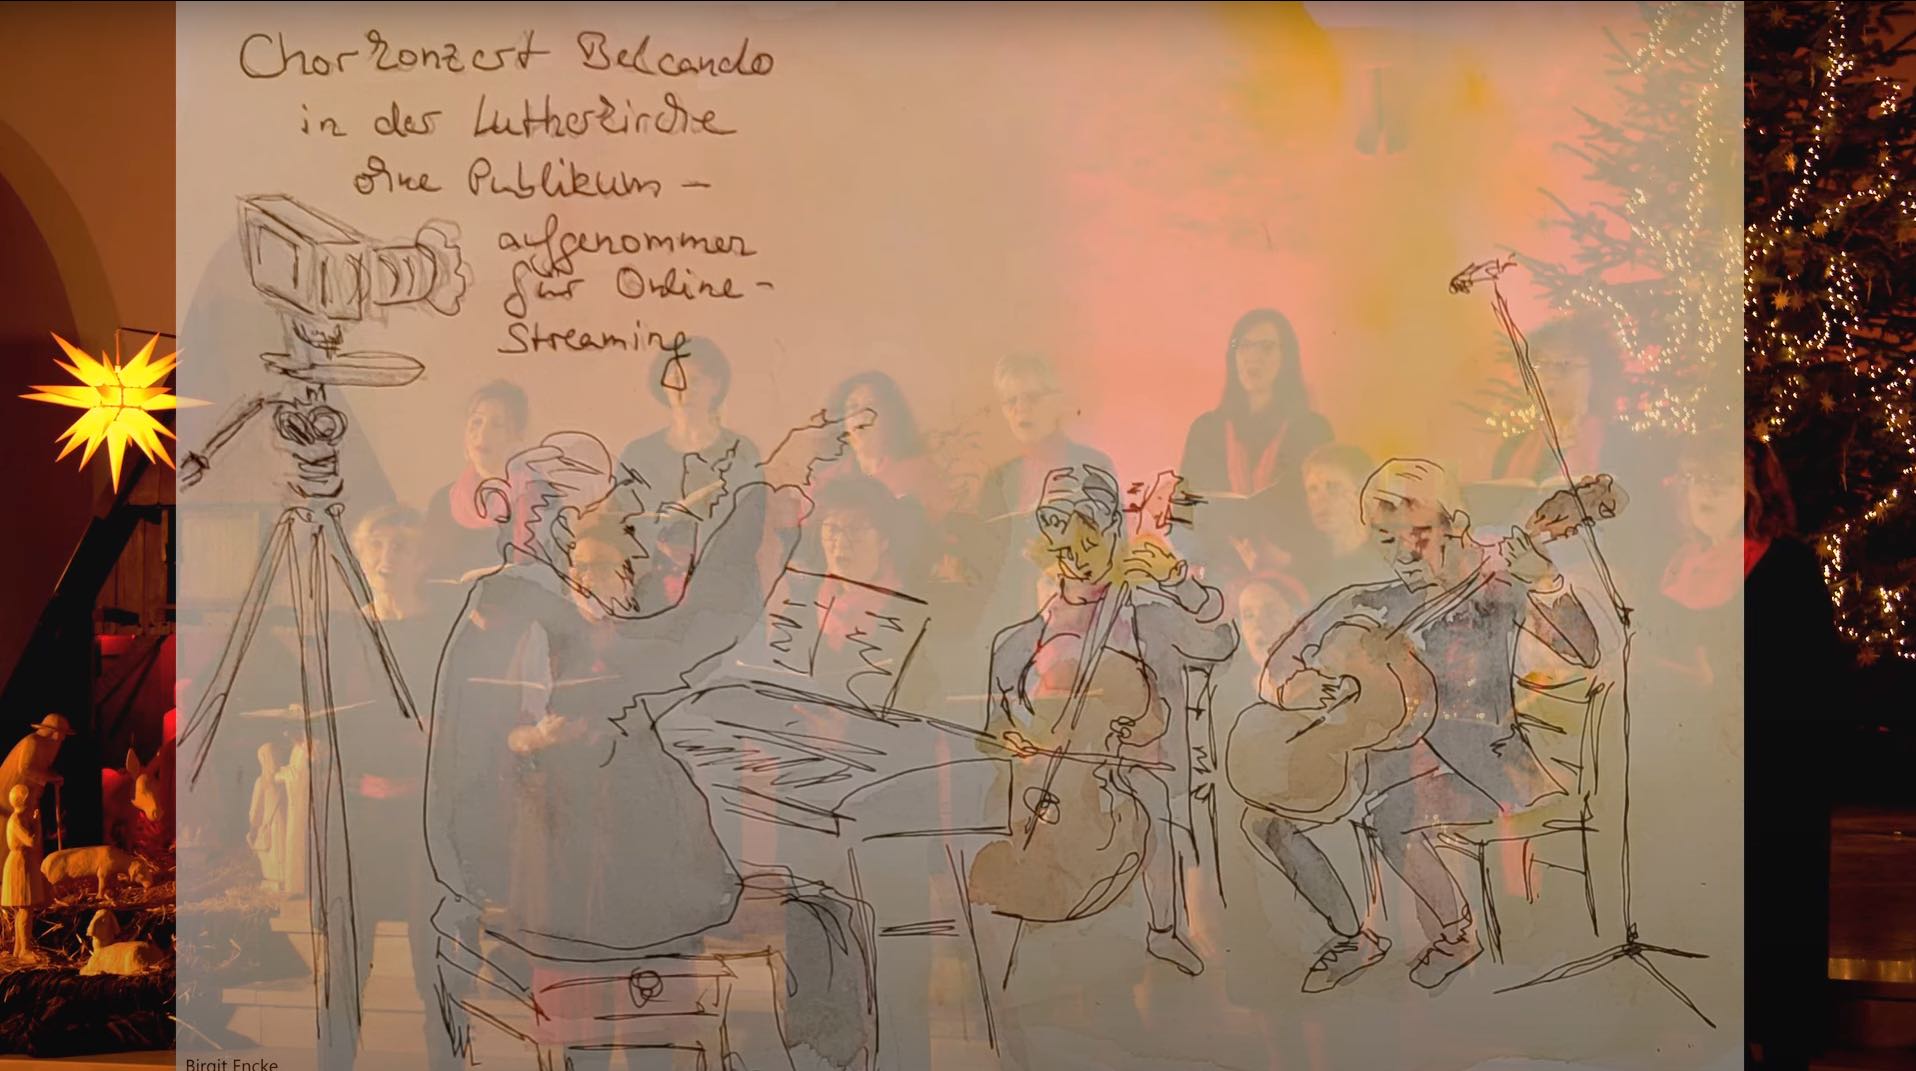 Chorkonzert Belcando
in der Lutherkirche
ohne Publikum –
aufgenommen
für Online-
Streaming
Birgit Encke